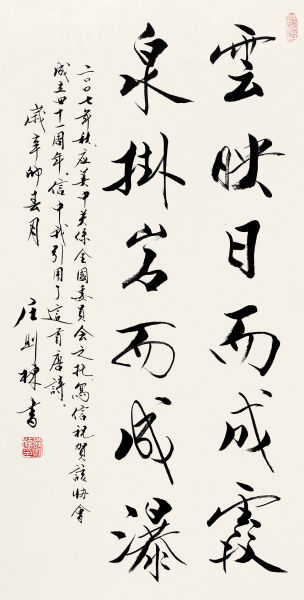 雲映日而成霞
泉掛岩而成瀑
二〇〇七年秋、应美中关係全國委員會之托寫信祝賀該协會
成立四十一周年、信中我引用了這首唐詩.
歲辛卯春月
庄则栋書